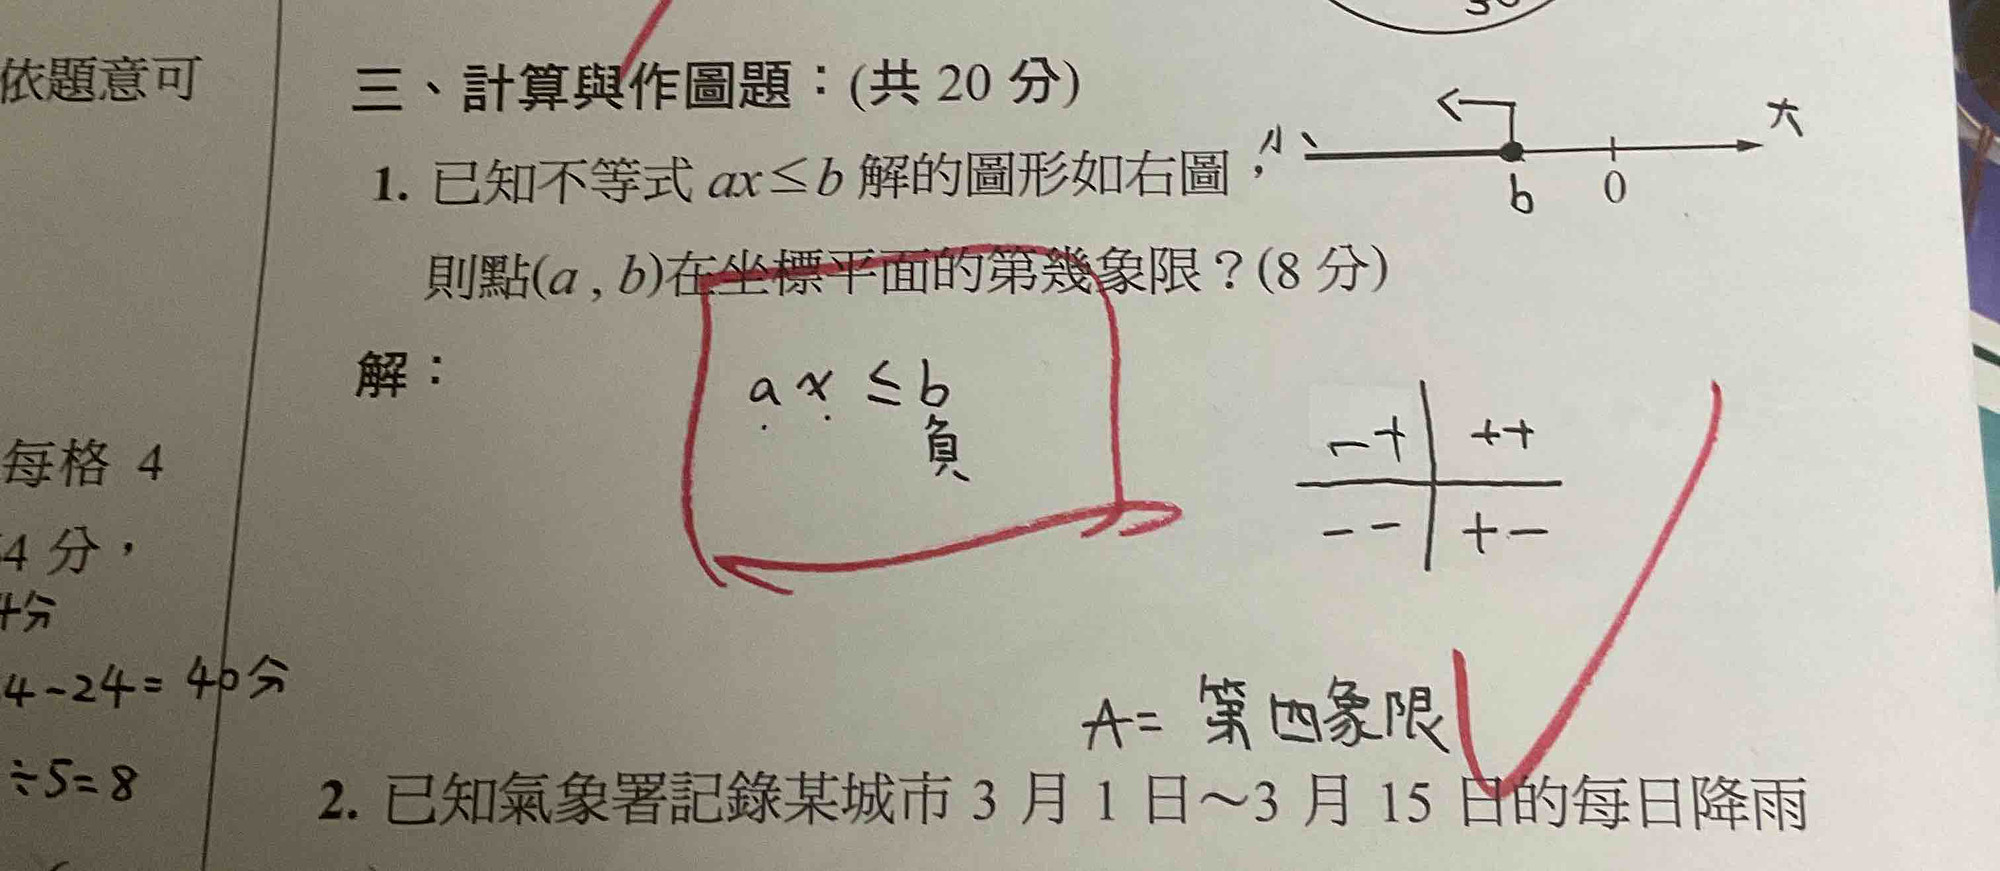 依題意可
每格 4
4 分，
4分
4-24=40分
÷5=8
三、計算與作圖題：(共 20 分)
1. 已知不等式 ax≤b 解的圖形如右圖，
小 大
b 0
則點(a , b)在坐標平面的第幾象限？(8 分)
解：
ax ≤ b
負
-+ ++
-- +-
A= 第四象限
2. 已知氣象署記錄某城市 3 月 1 日～3 月 15 日的每日降雨